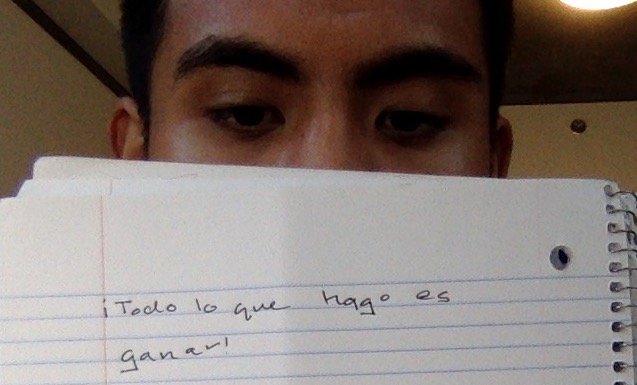 ¡Todo lo que hago es
ganar!